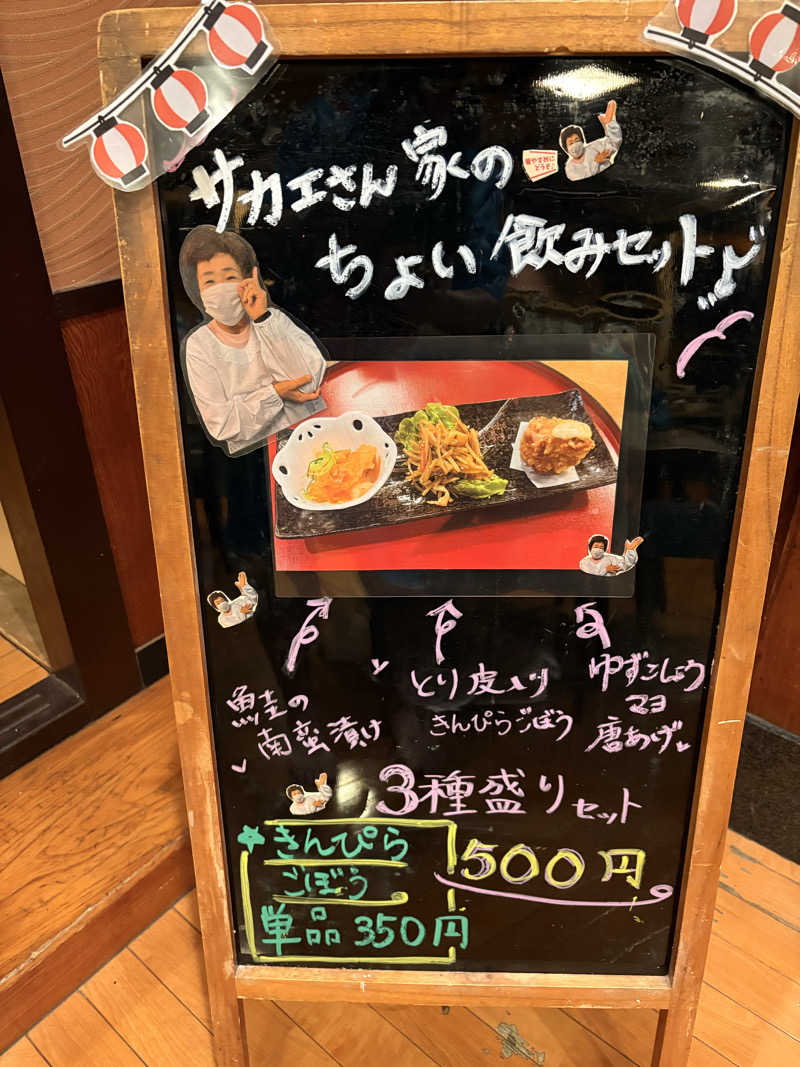 サカエさん家の
ちょい飲みセット♪
鮭の
南蛮漬け
とり皮入り
きんぴらごぼう
ゆずこしょう
マヨ
唐あげ
3種盛りセット
500円
きんぴら
ごぼう
単品 350円